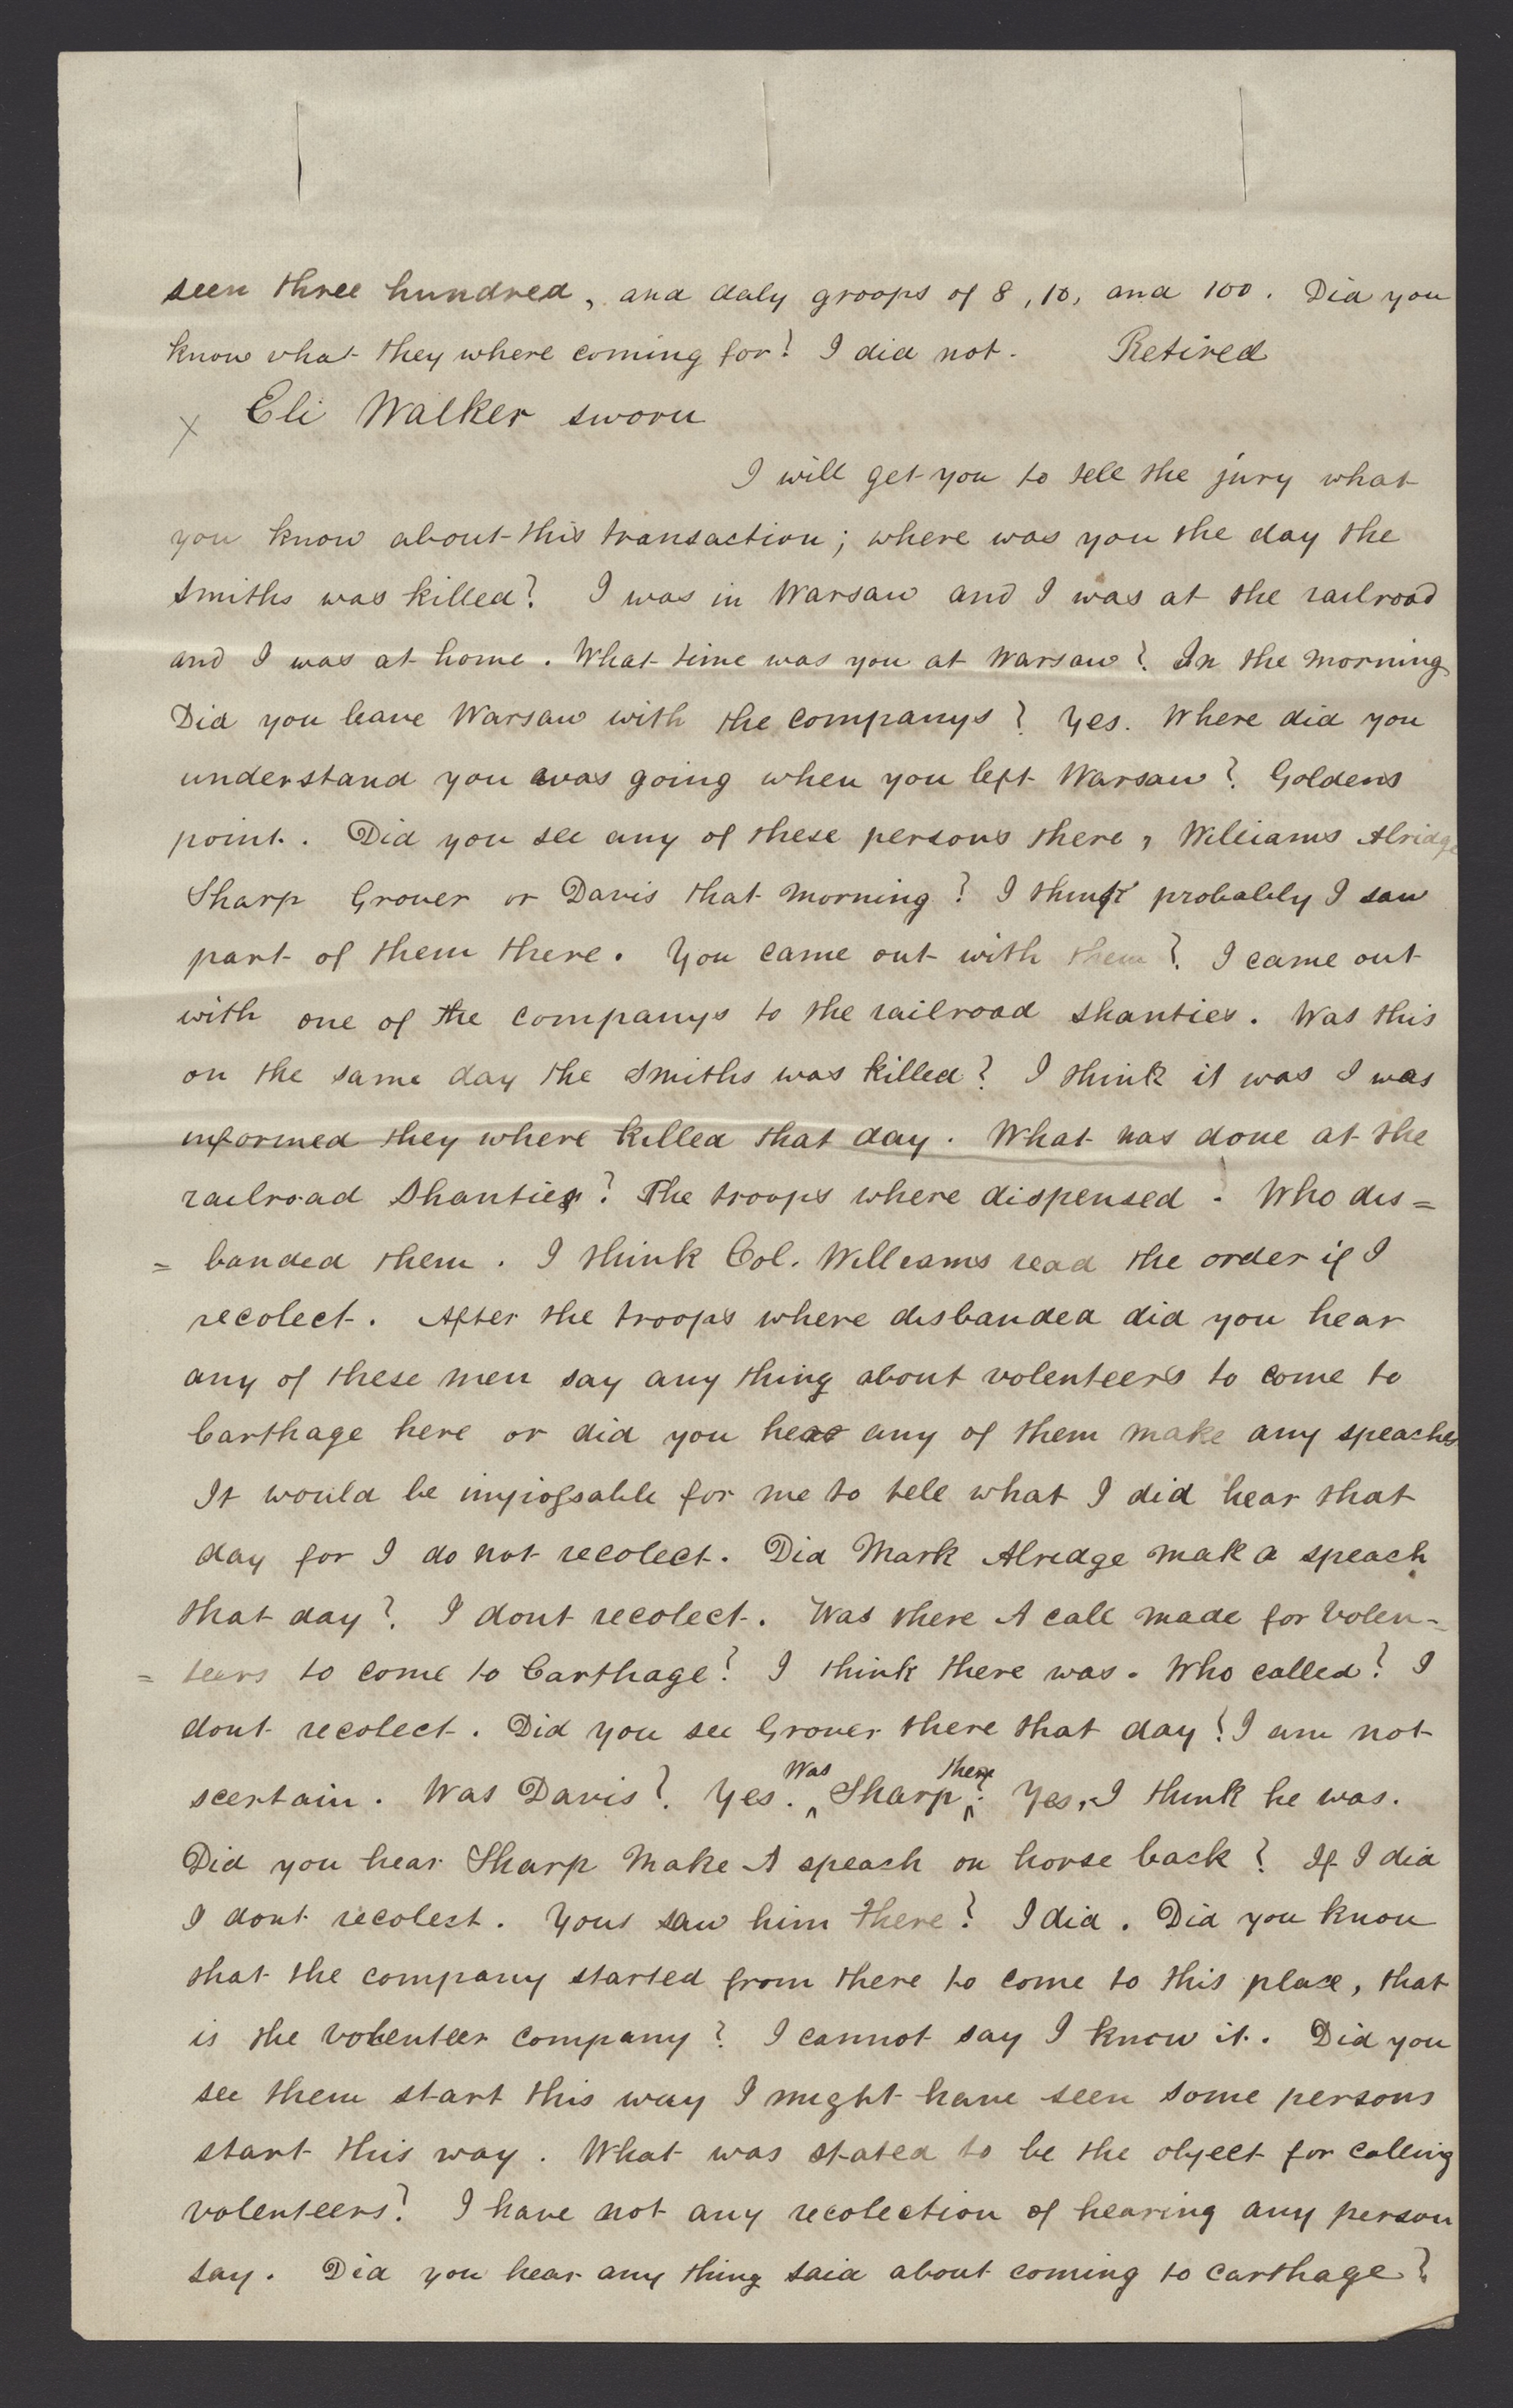 seen three hundred, and daly groops of 8, 10, and 100. Did you
know vhat they where coming for? I did not. Retired
x Eli Walker sworn
I will get you to tell the jury what
you know about this transaction; where was you the day the
Smiths was killed? I was in Warsaw and I was at the railroad
and I was at home. What time was you at Warsaw? In the morning
Did you leave Warsaw with the companys? Yes. Where did you
understand you was going when you left Warsaw? Goldens
point. Did you see any of these persons there, Williams Alridge
Sharp Grover or Davis that morning? I think probablly I saw
part of them there. You came out with them? I came out
with one of the companys to the railroad shanties. Was this
on the same day the Smiths was killed? I think it was I was
informed they where killed that day. What was done at the
railroad Shanties? The troops where dispensed. Who dis=
= banded them. I think Col. Williams read the order if I
recolect. After the troops where disbanded did you hear
any of these men say any thing about volenteers to come to
Carthage here or did you hear any of them make any speaches
It would be impossable for me to tell what I did hear that
day for I do not recolect. Did Mark Alredge mak a speach
that day? I dont recolect. Was there A call made for Volen=
= teers to come to Carthage? I think there was. Who called? I
dont recolect. Did you see Grover there that day? I am not
scertain. Was Davis? Yes. Was Sharp there? Yes, I think he was.
Did you hear Sharp Make A speach on horse back? If I did
I dont recolect. Yout saw him there? I did. Did you know
that the company started from there to come to this place, that
is the volenteer company? I cannot say I know it. Did you
see them start this way I might have seen some persons
start this way. What was stated to be the object for calling
volenteers? I have not any recolection of hearing any person
say. Did you hear any thing said about coming to Carthage?